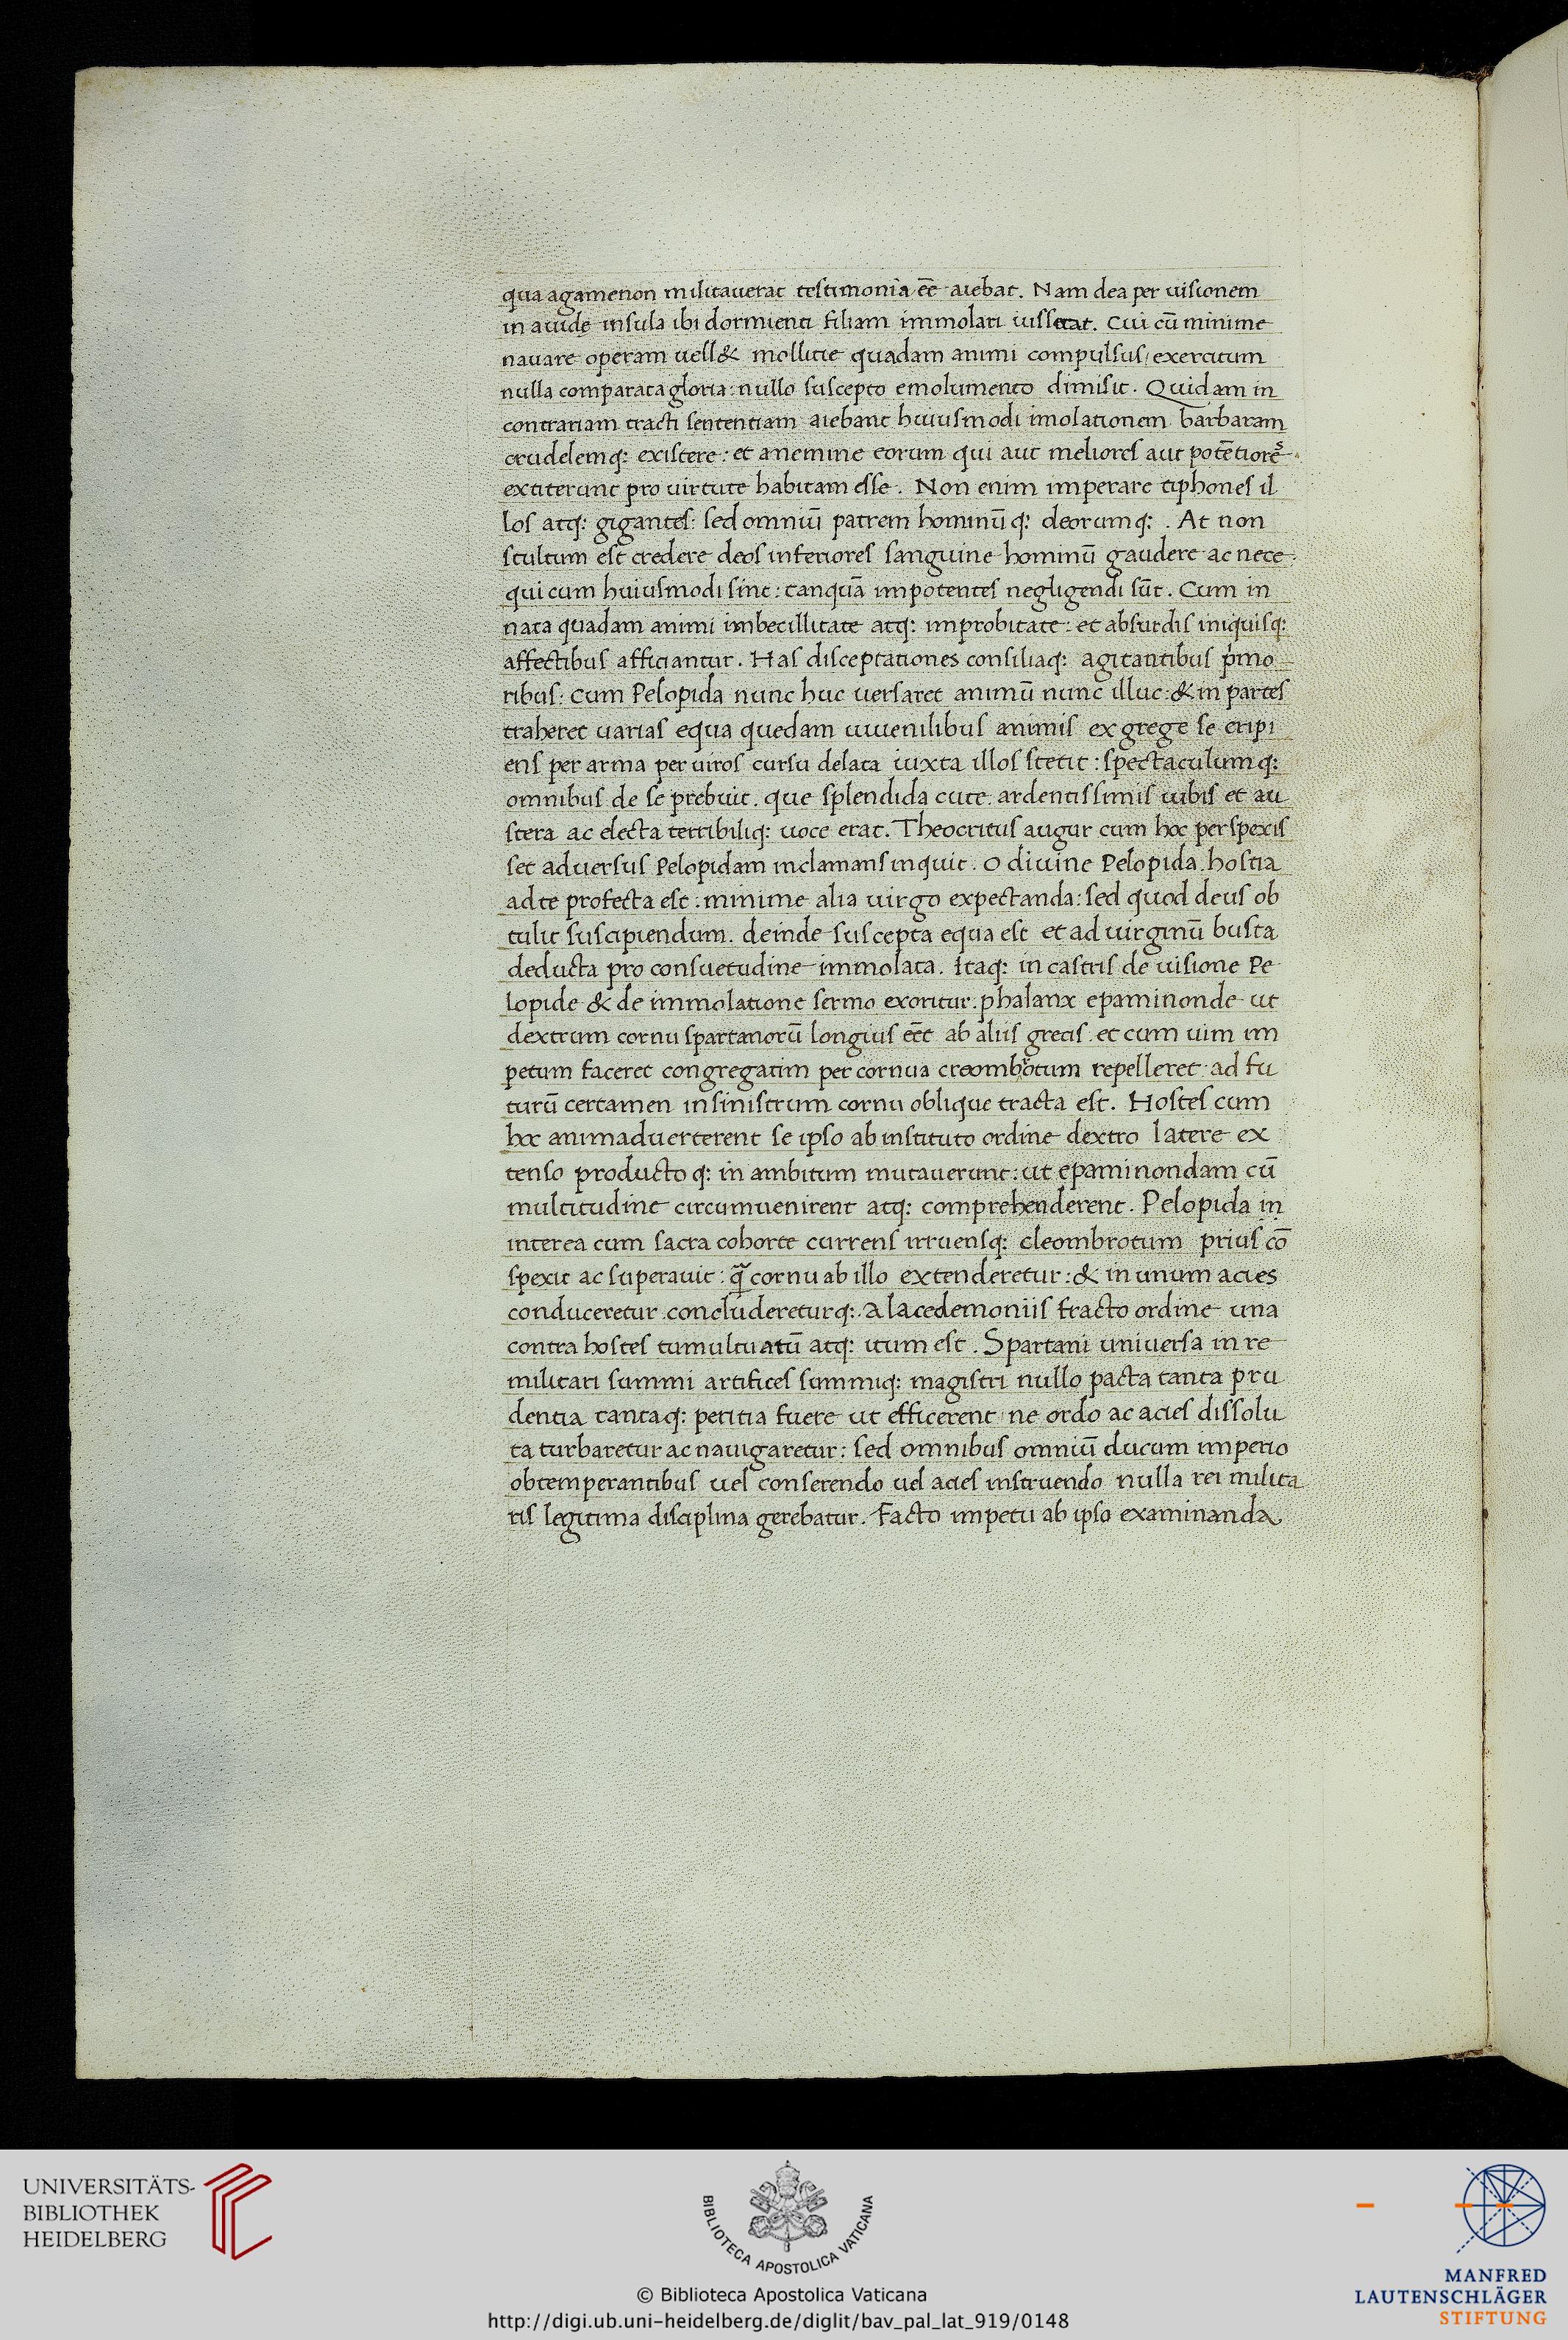 qua agamenon militauerat testimonia eē̄ aiebat. Nam dea per uisionem
in auide insula ibi dormienti filiam immolari iusserat. Cui cū minime
nauare operam uell& mollitie quadam animi compulsus/exercitum
nulla comparata gloria: nullo suscepto emolumento dimisit. Quidam in
contrariam tracti sententiam aiebant huiusmodi imolationem barbaram
crudelemq: existere: et anemine eorum qui aut meliores aut potētiores
extiterunt pro uirtute habitam esse. Non enim imperare tiphones il
los atq: gigantes: sed omniū patrem hominū q: deorumq: . At non
stultum est credere deos inferiores sanguine hominū gaudere ac nece.
qui cum huiusmodi sint: tanquā impotentes negligendi sūt. Cum in
nata quadam animi imbecillitate atq: improbitate: et absurdis iniquisq:
affectibus afficiantur. Has disceptationes consiliaq: agitantibus p̍mo
ribus: cum Pelopida nunc huc uersaret animū nunc illuc: & in partes
traheret uarias equa quedam iuuenilibus animis ex grege se eripi
ens per arma per uiros cursu delata iuxta illos stetit: spectaculumq:
omnibus de se prebuit. que splendida cute. ardentissimis iubis et au
stera ac electa terribiliq: uoce erat. Theocritus augur cum hoc perspexis
set aduersus Pelopidam inclamans inquit. O diuine Pelopida. hostia
ad te profecta est: minime alia uirgo expectanda: sed quod deus ob
tulit suscipiendum. deinde suscepta equa est et ad uirginū busta
deducta pro consuetudine immolata. Itaq: in castris de uisione Pe
lopide & de immolatione sermo exoritur. phalanx epaminonde ut
dextrum cornu spartanorū longius eēt ab aliis grecis. et cum uim im
petum faceret congregatim per cornua creombrotum repelleret ad fu
turū certamen in sinistrum cornu oblique tracta est. Hostes cum
hoc animaduerterent se ipso ab instituto ordine dextro latere ex
tenso producto q: in ambitum mutauerunt: ut epaminondam cū
multitudine circumuenirent atq: comprehenderent. Pelopida in
interea cum sacra cohorte currens irruensq: cleombrotum prius cō
spexit ac superauit: q̄ cornu ab illo extenderetur: & in unum acies
conduceretur. concludereturq:. A lacedemoniis fracto ordine una
contra hostes tumultuatū atq: itum est. Spartani uniuersa in re
militari summi artifices summiq: magistri nullo pacta tanta pru
dentia tantaq: peritia fuere ut efficerent ne ordo ac acies dissolu
ta turbaretur ac nauigaretur: sed omnibus omniū ducum imperio
obtemperantibus uel conserendo uel acies instruendo nulla rei milita
ris legitima disciplina gerebatur. Facto impetu ab ipso examinanda
UNIVERSITÄTS-
BIBLIOTHEK
HEIDELBERG
BIBLIOTECA APOSTOLICA VATICANA
© Biblioteca Apostolica Vaticana
http://digi.ub.uni-heidelberg.de/diglit/bav_pal_lat_919/0148
MANFRED
LAUTENSCHLÄGER
STIFTUNG